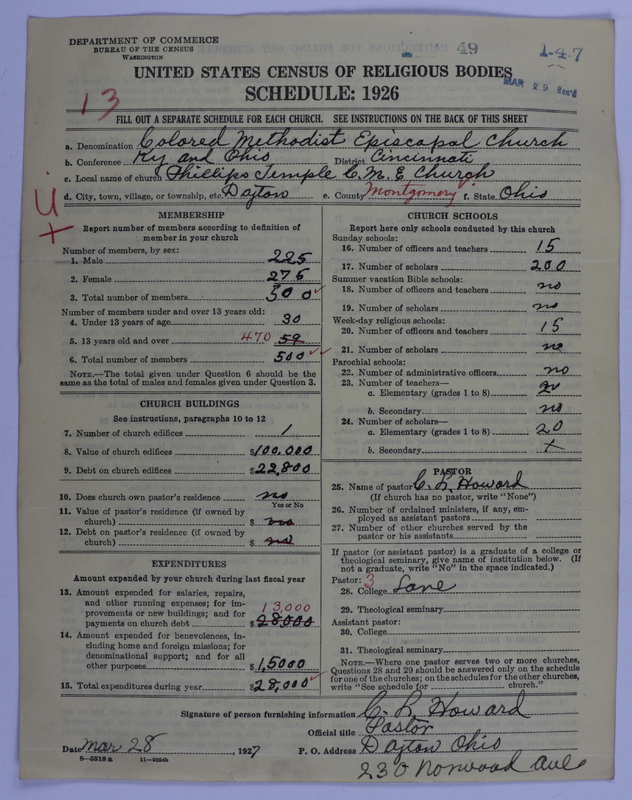 DEPARTMENT OF COMMERCE
BUREAU OF THE CENSUS
WASHINGTON
49
1-47
MAR 29 Rec'd
UNITED STATES CENSUS OF RELIGIOUS BODIES
SCHEDULE: 1926
13
FILL OUT A SEPARATE SCHEDULE FOR EACH CHURCH. SEE INSTRUCTIONS ON THE BACK OF THIS SHEET
a. Denomination Colored Methodist Episcopal Church
b. Conference Ky and Ohio District Cincinnati
c. Local name of church Phillips Temple C. M. E Church
d. City, town, village, or township, etc. Dayton e. County Montgomery f. State Ohio
MEMBERSHIP
Report number of members according to definition of
member in your church
Number of members, by sex:
1. Male 225
2. Female 275
3. Total number of members 500
Number of members under and over 13 years old:
4. Under 13 years of age 30
5. 13 years old and over 470 59
6. Total number of members 500
NOTE.—The total given under Question 6 should be the
same as the total of males and females given under Question 3.
CHURCH BUILDINGS
See instructions, paragraphs 10 to 12
7. Number of church edifices 1
8. Value of church edifices $100,000
9. Debt on church edifices $22,800
10. Does church own pastor's residence no
Yes or No
11. Value of pastor's residence (if owned by
church) $ no
12. Debt on pastor's residence (if owned by
church) $ no
EXPENDITURES
Amount expended by your church during last fiscal year
13. Amount expended for salaries, repairs,
and other running expenses; for im-
provements or new buildings; and for 13,000
payments on church debt $28,000
14. Amount expended for benevolences, in-
cluding home and foreign missions; for
denominational support; and for all
other purposes $15000
15. Total expenditures during year $28,000
CHURCH SCHOOLS
Report here only schools conducted by this church
Sunday schools:
16. Number of officers and teachers 15
17. Number of scholars 200
Summer vacation Bible schools:
18. Number of officers and teachers no
19. Number of scholars no
Week-day religious schools:
20. Number of officers and teachers 15
21. Number of scholars no
Parochial schools:
22. Number of administrative officers no
23. Number of teachers—
a. Elementary (grades 1 to 8)
b. Secondary no
24. Number of scholars—
a. Elementary (grades 1 to 8) 20
b. Secondary x
PASTOR
25. Name of pastor C. L. Howard
(If church has no pastor, write "None")
26. Number of ordained ministers, if any, em-
ployed as assistant pastors
27. Number of other churches served by the
pastor or his assistants
If pastor (or assistant pastor) is a graduate of a college or
theological seminary, give name of institution below. (If
not a graduate, write "No" in the space indicated.)
Pastor: 3
28. College Lane
29. Theological seminary
Assistant pastor:
30. College
31. Theological seminary
NOTE.—Where one pastor serves two or more churches,
Questions 28 and 29 should be answered only on the schedule
for one of the churches; on the schedules for the other churches,
write "See schedule for church."
Signature of person furnishing information C. L. Howard
Official title Pastor
Date Mar 28, 1927 P. O. Address Dayton Ohio
8-5518 a
230 Norwood Ave